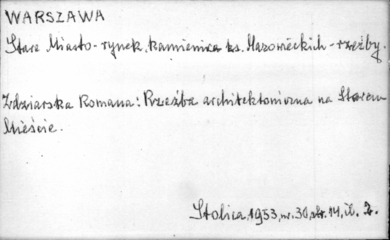 WARSZAWA
Stare Miasto - rynek, kamienica ks. Mazowieckich - rzeźby.
Zdziarska Romana: Rzeźba architektoniczna na Starem
Mieście.
Stolica, 1953, nr. 30, str. 14, il. 2.